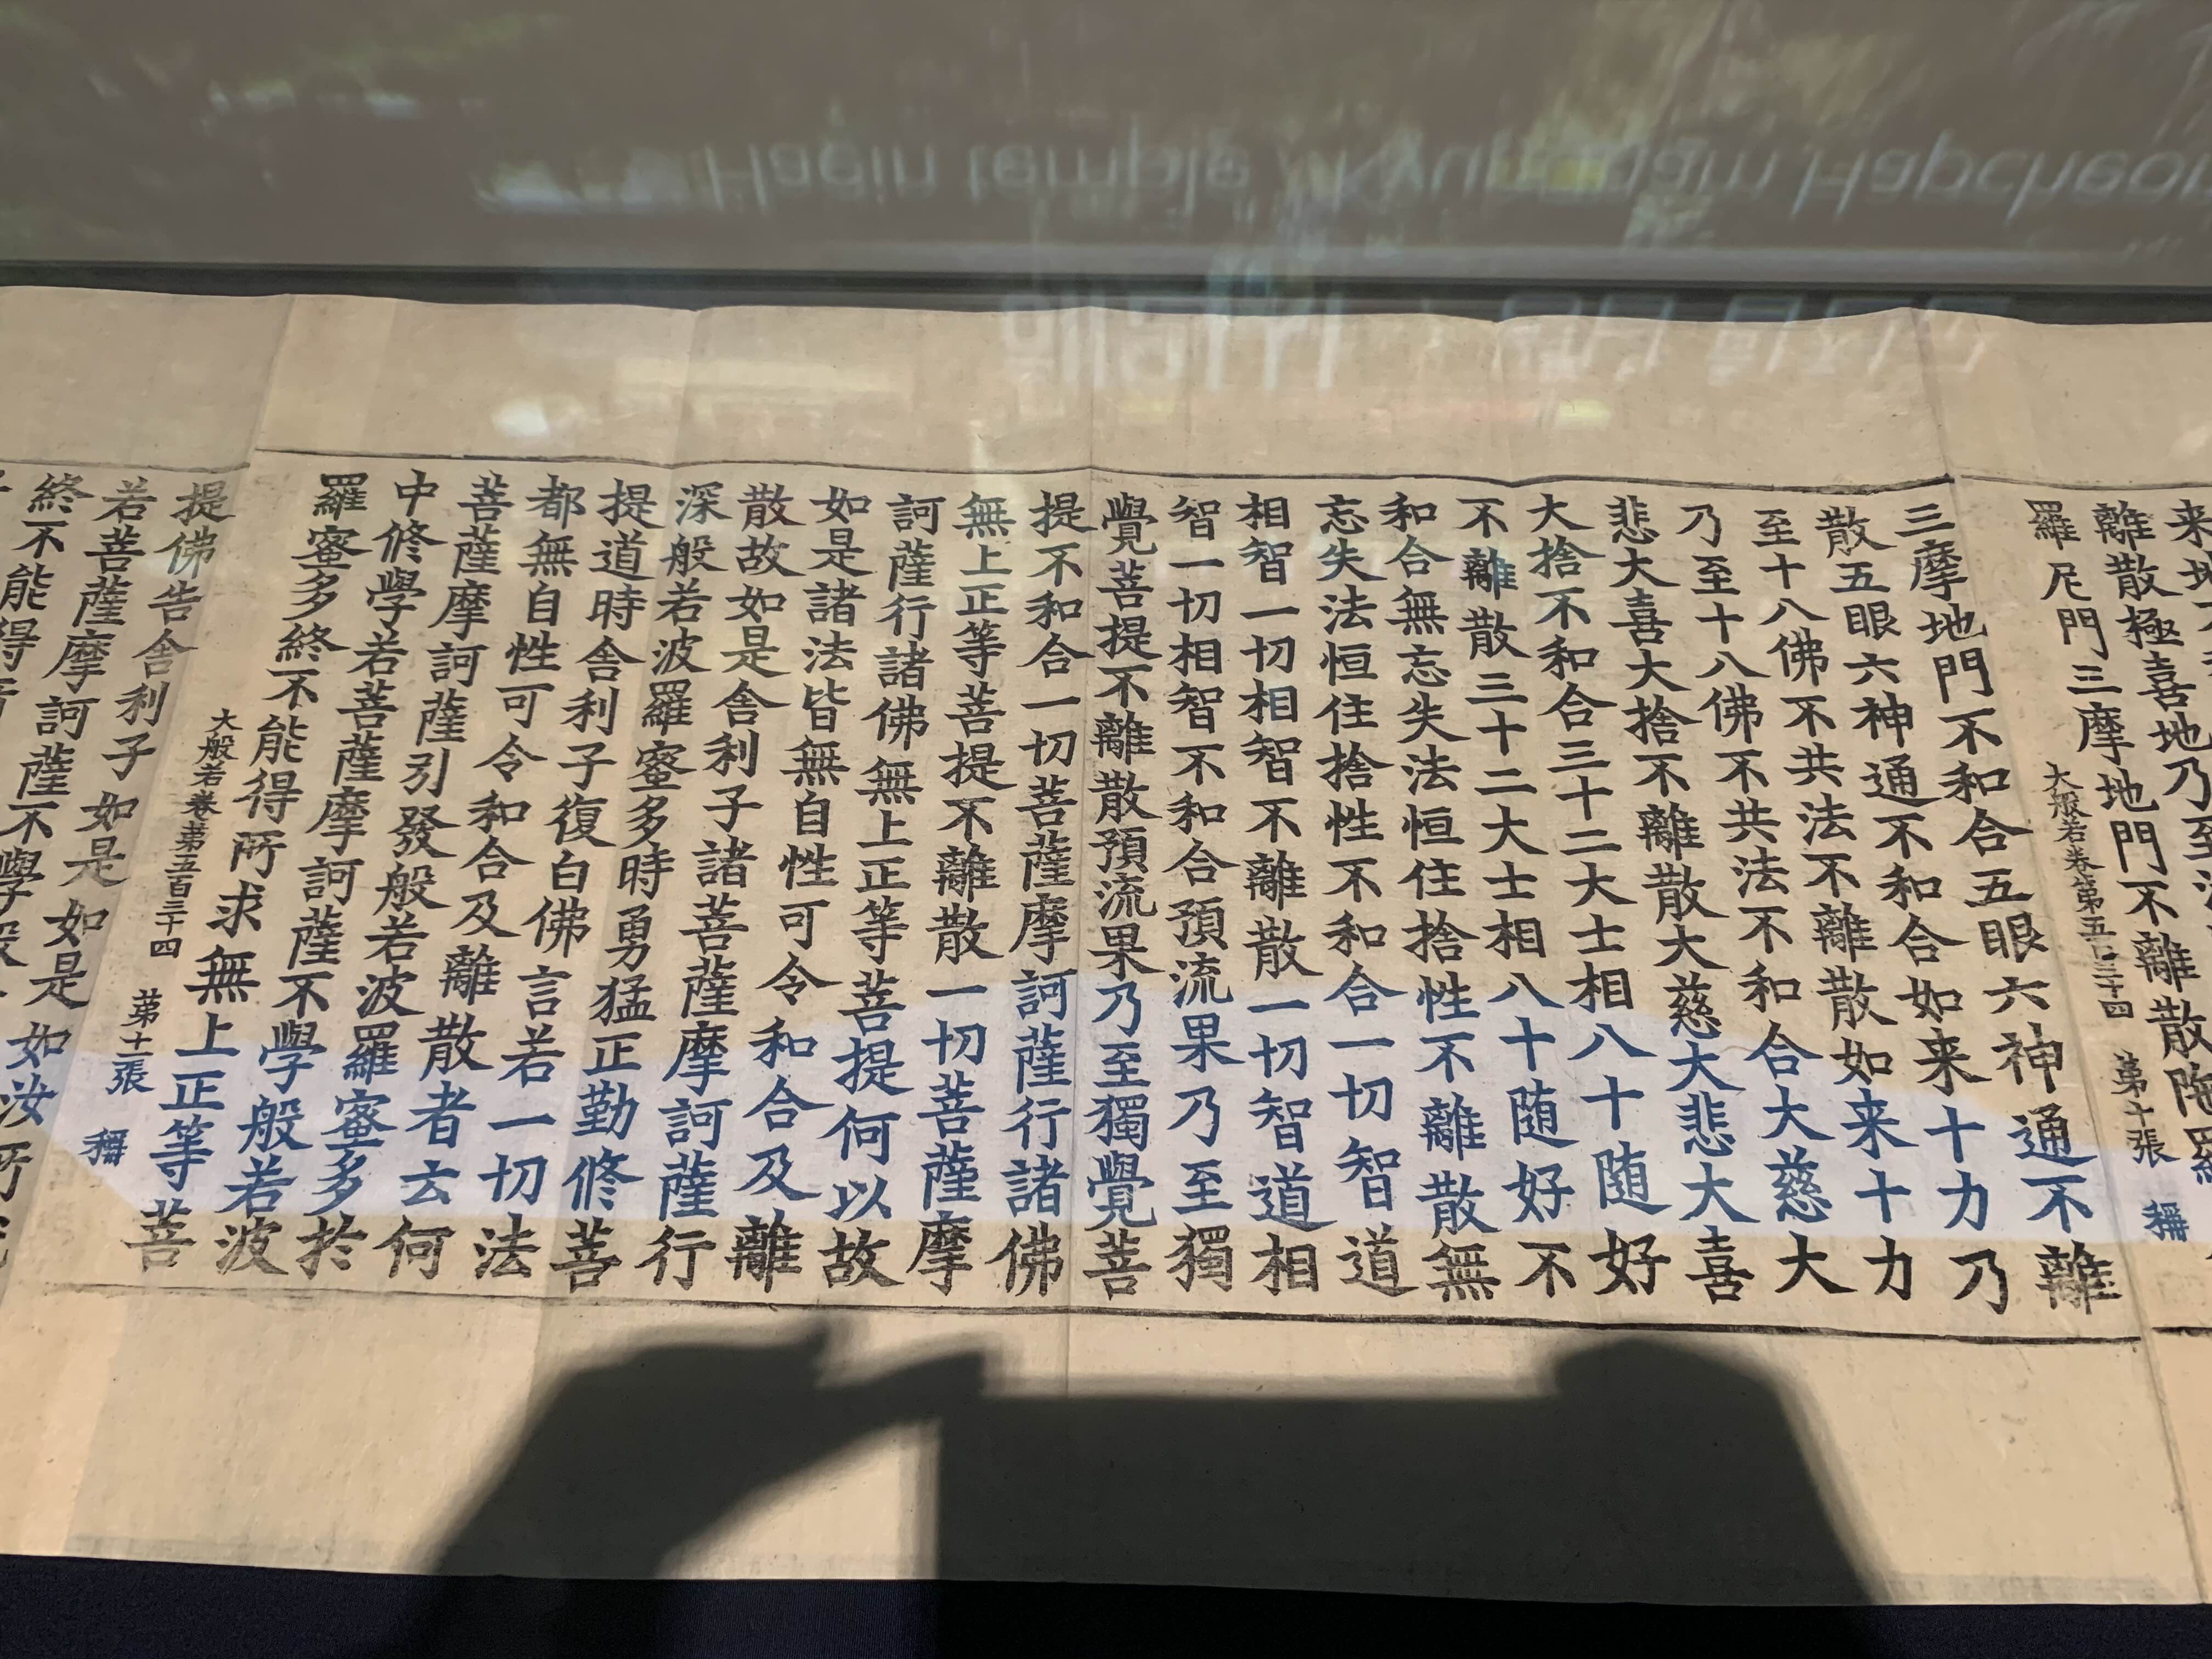 来地
離散極喜地乃至
羅尼門三摩地門不離散陁羅
大般若卷第五百三十四 第十張 稱
三摩地門不和合五眼六神通不離
散五眼六神通不和合如来十力乃
至十八佛不共法不離散如来十力
乃至十八佛不共法不和合大慈大
悲大喜大捨不離散大慈大悲大喜
大捨不和合三十二大士相八十随好
不離散三十二大士相八十随好不
和合無忘失法恒住捨性不離散無
忘失法恒住捨性不和合一切智道
相智一切相智不離散一切智道相
智一切相智不和合預流果乃至獨
覺菩提不離散預流果乃至獨覺菩
提不和合一切菩薩摩訶薩行諸佛
無上正等菩提不離散一切菩薩摩
訶薩行諸佛無上正等菩提何以故
如是諸法皆無自性可令和合及離
散故如是舍利子諸菩薩摩訶薩行
深般若波羅蜜多時勇猛正勤修菩
提道時舍利子復白佛言若一切法
都無自性可令和合及離散者云何
菩薩摩訶薩引發般若波羅蜜多於
中修學若菩薩摩訶薩不學般若波
羅蜜多終不能得所求無上正等菩
大般若卷第五百三十四 第十一張 稱
提佛告舍利子如是如是如汝所
若菩薩摩訶薩不學般
終不能得
Haein temple / Kyungnam Hapcheon